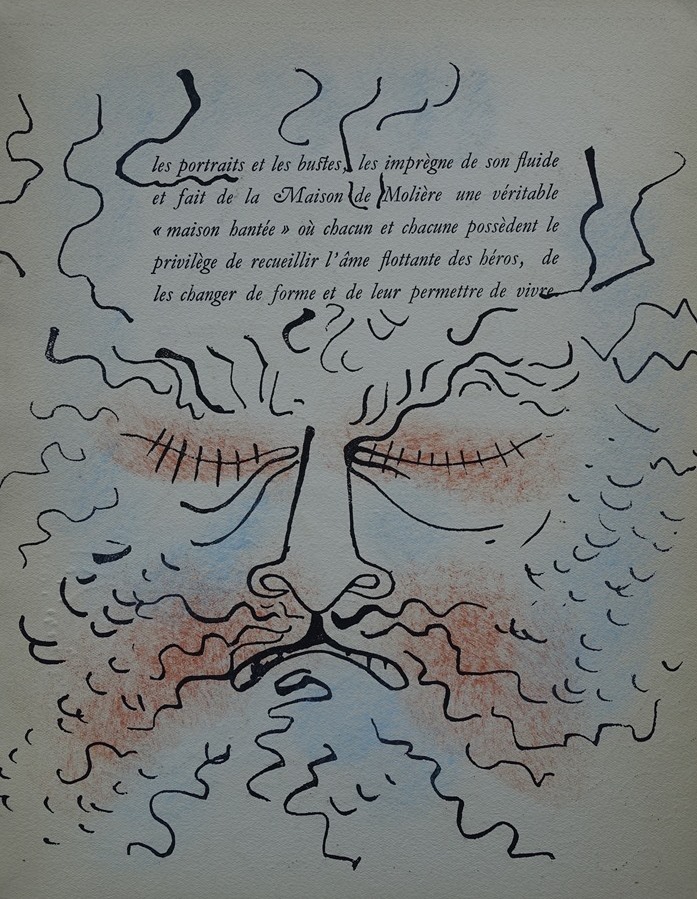 les portraits et les bustes, les imprègne de son fluide
et fait de la Maison de Molière une véritable
« maison hantée » où chacun et chacune possèdent le
privilège de recueillir l'âme flottante des héros, de
les changer de forme et de leur permettre de vivre